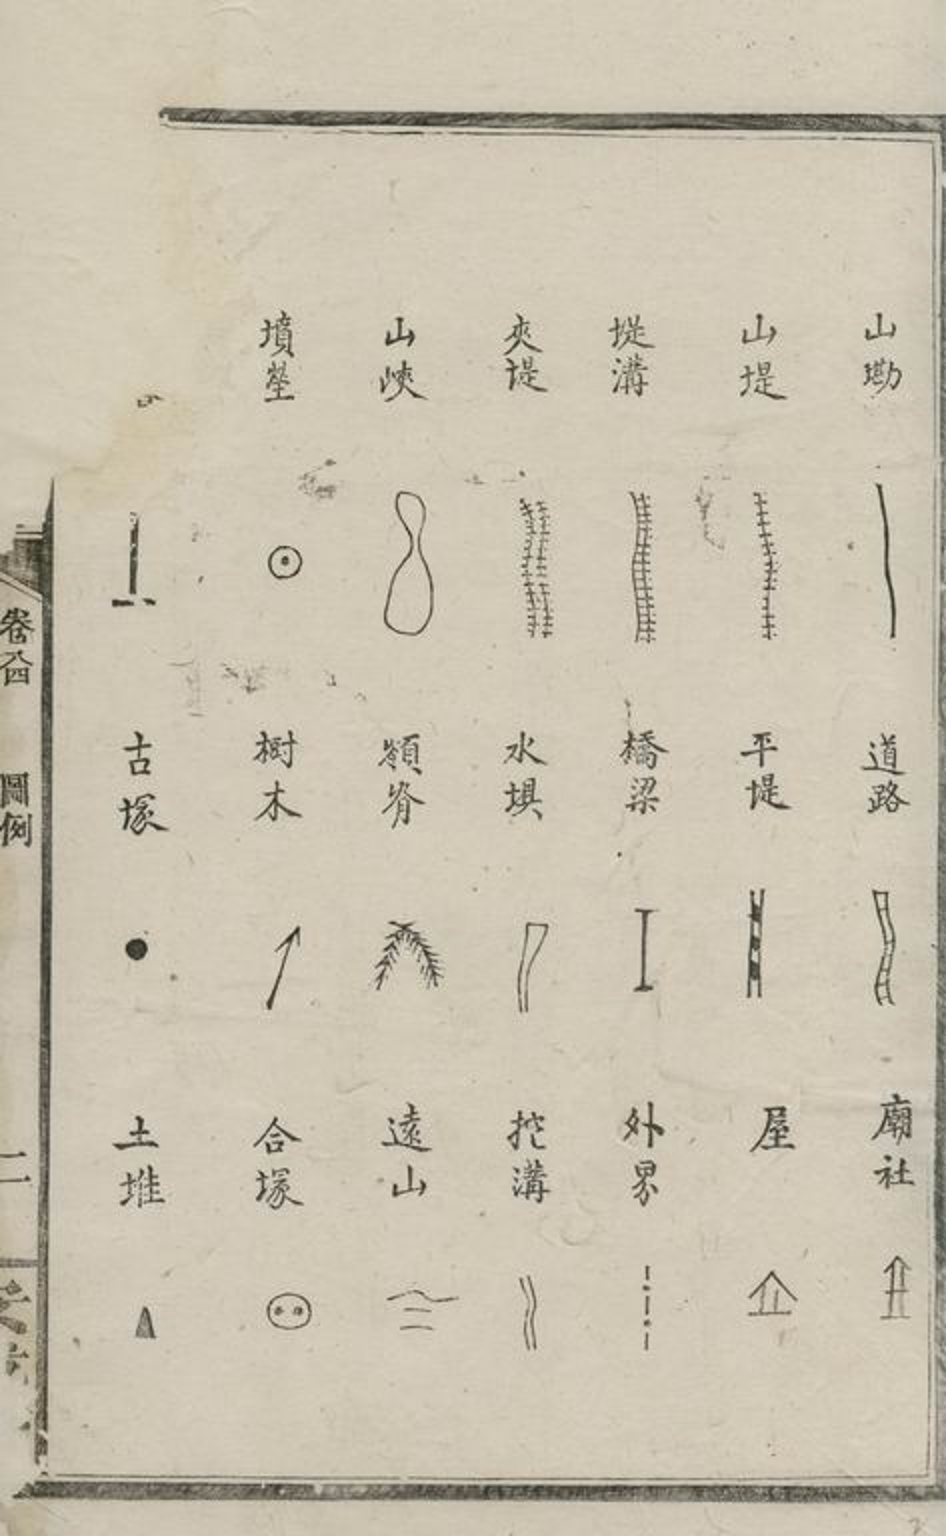 山塝
道路
廟社
山堤
平堤
屋
堤溝
橋梁
外界
夾堤
水埧
挖溝
山峽
嶺脊
遠山
墳塋
樹木
合塚
古塚
土堆
圖例
二